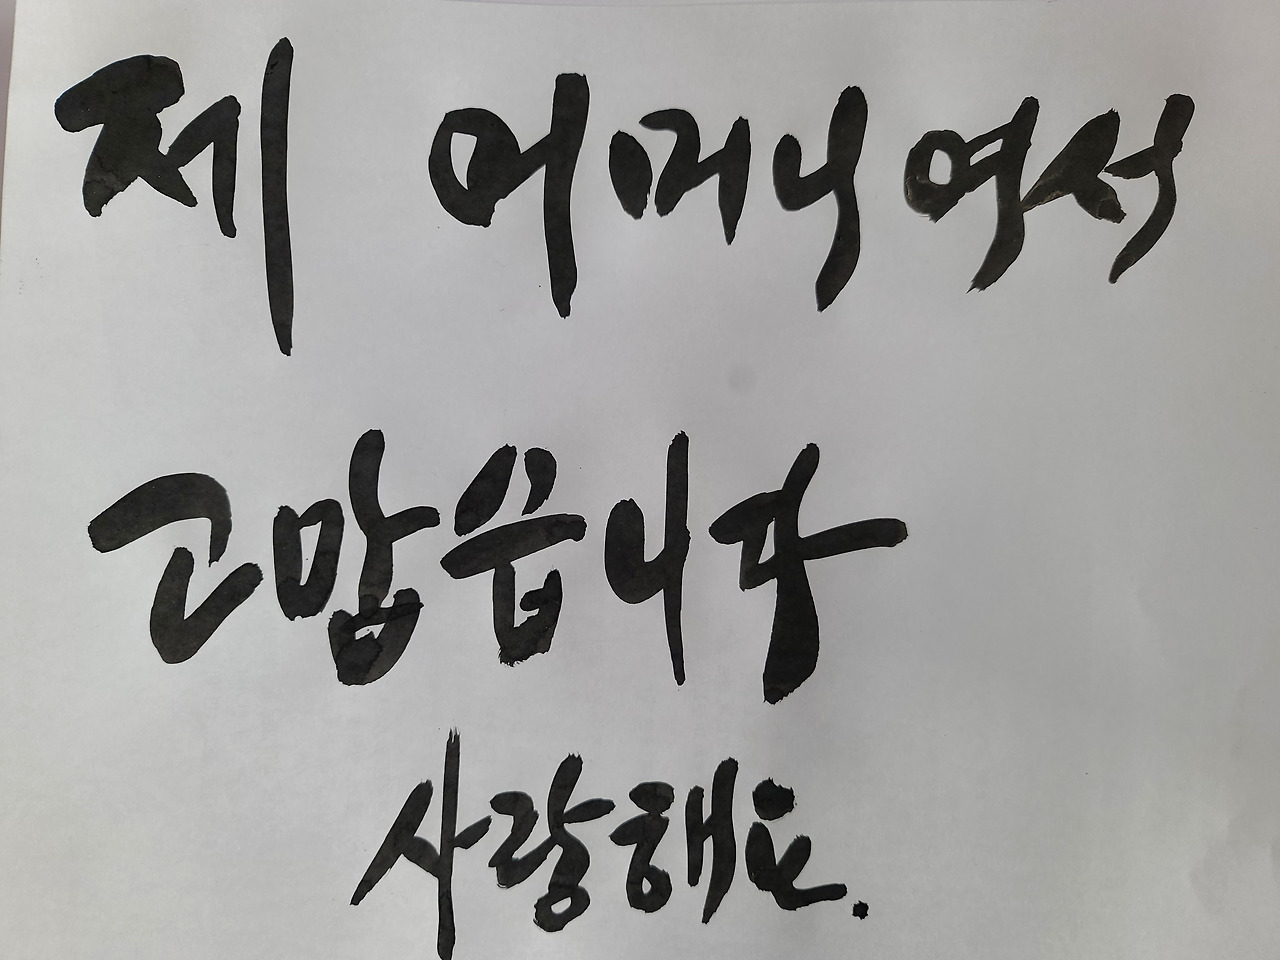 제 어머니여서
고맙습니다
사랑해요.